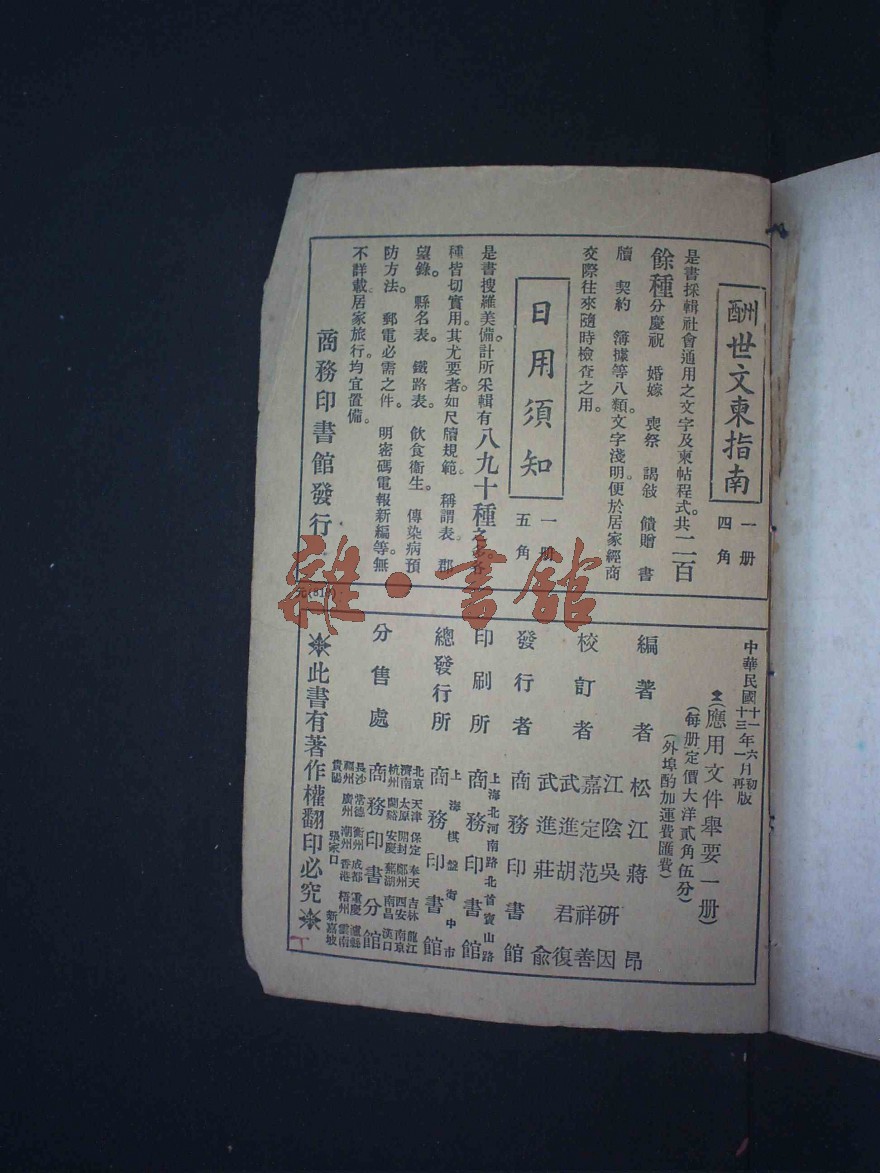 酬世文柬指南
一册
四角
是書採輯社會通用之文字及柬帖程式。共二百
餘種分慶祝 婚嫁 喪祭 謁敍 餽贈 書
牘 契約 簿據等八類文字淺明便於居家經商
交際往來隨時檢查之用。
日用須知
一册
五角
是書搜羅美備。計所采輯有八九十種之多。各
種皆切實用。其尤要者。如尺牘規範。稱謂表。郡
望錄。縣名表。鐵路表。飲食衞生。傳染病預
防方法。郵電必需之件。明密碼電報新編等。無
不詳載。居家旅行。均宜置備。
商務印書館發行
中華民國十一年六月初版
十三年一月再版
(應用文件舉要一册)
(每册定價大洋貳角伍分)
(外埠酌加運費匯費)
編著者 松江蔣昂
校訂者 江陰吳研因
嘉定范祥善
武進胡君復
武進莊俞
發行者 商務印書館
印刷所 上海北河南路北首寶山路
商務印書館
總發行所 上海棋盤街中市
商務印書館
分售處 北京 天津 保定 奉天 吉林 龍江
濟南 太原 開封 鄭州 西安 南京
杭州 蘭谿 安慶 蕪湖 南昌 漢口
商務印書分館
長沙 常德 衡州 成都 重慶 瀘縣
福州 廣州 潮州 香港 梧州 雲南
貴陽 張家口 新嘉坡
此書有著作權翻印必究
雜·書館